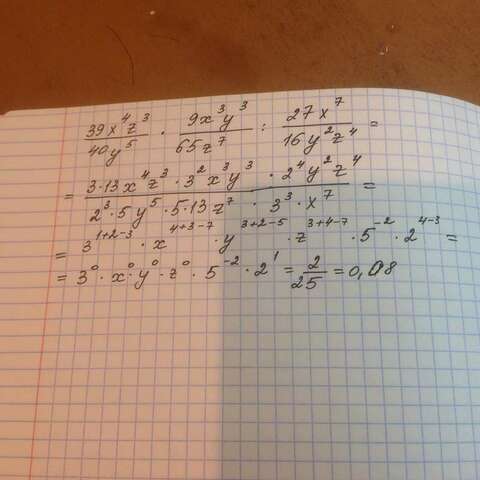 39x⁴z³/40y⁵ · 9x³y³/65z⁷ : 27x⁷/16y²z⁴ =
= 3·13x⁴z³·3²x³y³·2⁴y²z⁴/2³·5y⁵·5·13z⁷·3³·x⁷ =
= 3¹⁺²⁻³ · x⁴⁺³⁻⁷ · y³⁺²⁻⁵ · z³⁺⁴⁻⁷ · 5⁻² · 2⁴⁻³ =
= 3⁰·x⁰·y⁰·z⁰·5⁻²·2¹ = 2/25 = 0,08